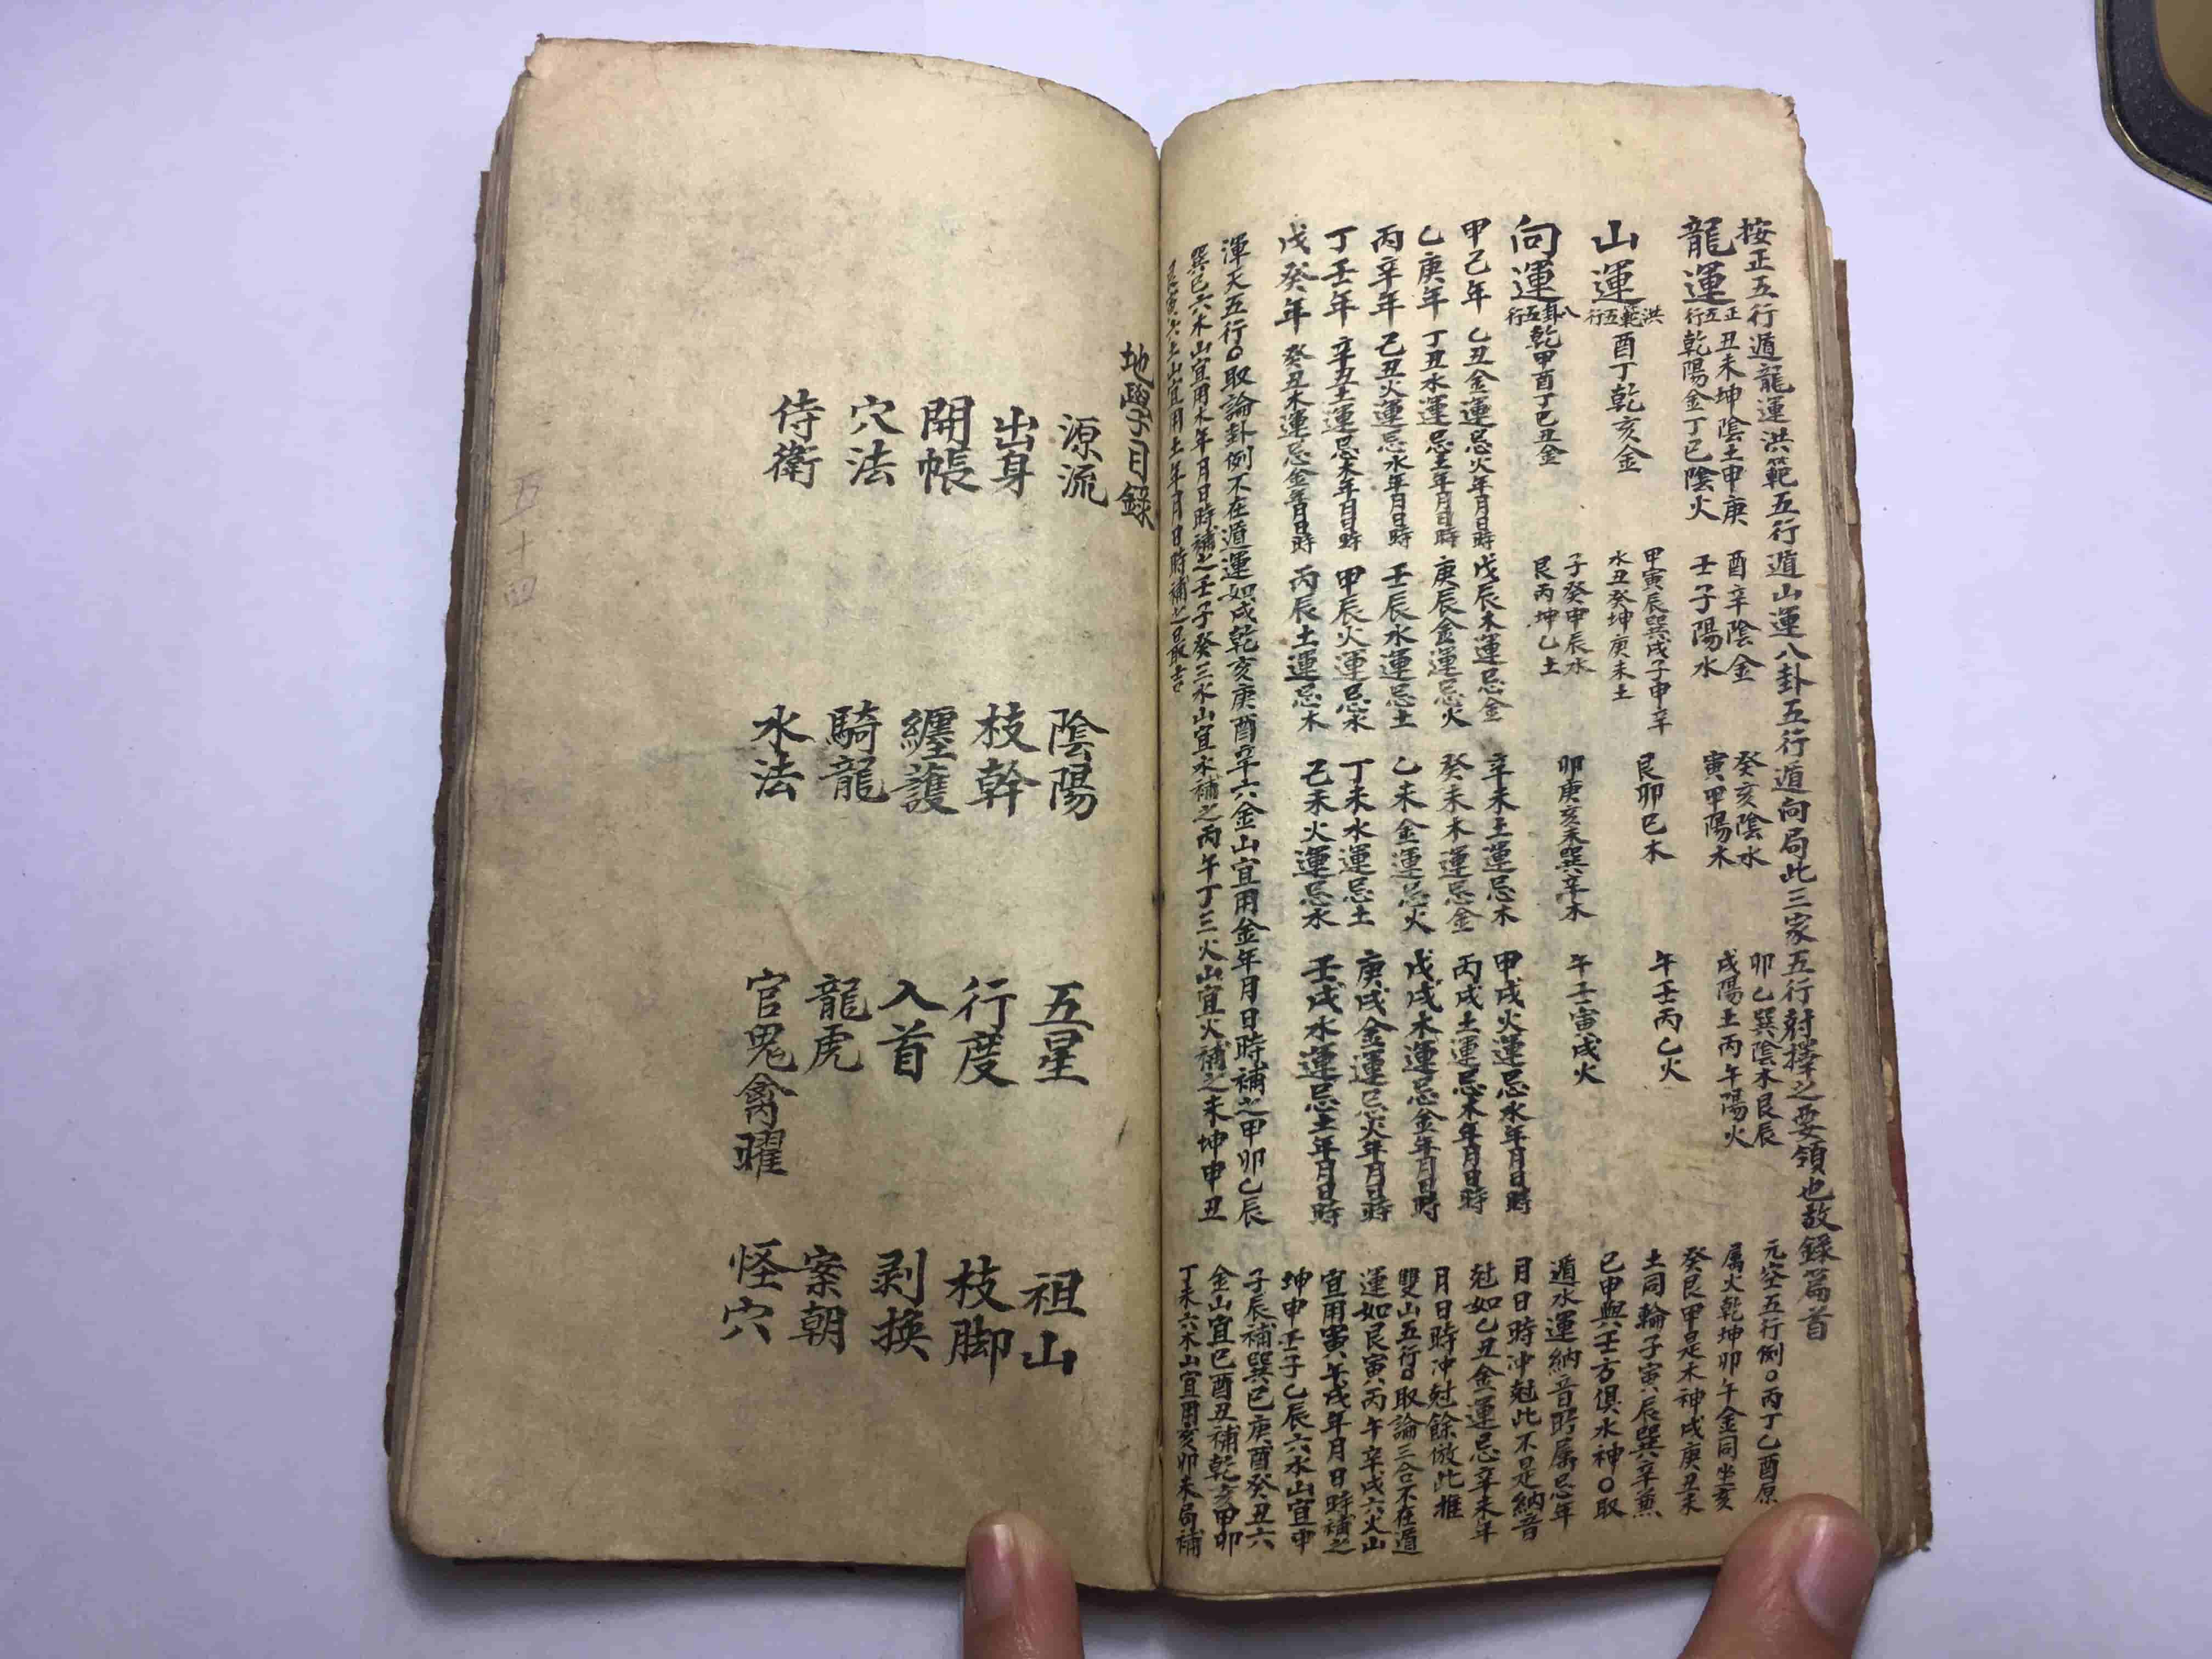 按正五行遁龍運洪範五行遁山運八卦五行遁向局此三家五行尅擇之要領也故錄篇首
龍運
正五行
丑未坤陰土申庚
乾陽金丁巳陰火
酉辛陰金
壬子陽水
癸亥陰水
寅甲陽木
卯乙巽陰木艮辰
戌陽土丙午陽火
山運
洪範五行
酉丁乾亥金
甲寅辰巽戌子申辛
水丑癸坤庚未土
艮卯巳木
午壬丙乙火
向運
八卦五行
乾甲酉丁巳丑金
子癸申辰水
艮丙坤乙土
卯庚亥未巽辛木
午壬寅戌火
甲己年 乙丑金運忌火年月日時 戊辰木運忌金 辛未土運忌木 甲戌火運忌水年月日時
乙庚年 丁丑水運忌土年月日時 庚辰金運忌火 癸未木運忌金 丙戌土運忌木年月日時
丙辛年 己丑火運忌水年月日時 壬辰水運忌土 乙未金運忌火 戊戌木運忌金年月日時
丁壬年 辛丑土運忌木年月日時 甲辰火運忌水 丁未水運忌土 庚戌金運忌火年月日時
戊癸年 癸丑木運忌金年月日時 丙辰土運忌木 己未火運忌水 壬戌水運忌土年月日時
渾天五行○取論卦例不在遁運如戌乾亥庚酉辛六金山宜用金年月日時補之甲卯乙辰
巽巳六木山宜用水年月日時補之壬子癸三水山宜水補之丙午丁三火山宜火補之未坤申丑
艮寅六土山宜用土年月日時補之最吉
元空五行例○丙丁乙酉原
属火乾坤卯午金同坐亥
癸艮甲是木神戌庚丑未
土同輪子寅辰巽辛兼
巳申與壬方俱水神○取
遁水運納音所属忌年
月日時冲尅此不是納音
尅如乙丑金運忌辛未年
月日時冲尅餘倣此推
雙山五行○取論三合不在遁
運如艮寅丙午辛戌六火山
宜用寅午戌年月日時補之
坤申壬子乙辰六水山宜申
子辰補巽巳庚酉癸丑六
金山宜巳酉丑補乾亥甲卯
丁未六木山宜用亥卯未局補
地學目錄
源流 陰陽 五星 祖山
出身 枝幹 行度 枝脚
開帳 纏護 入首 剥換
穴法 騎龍 龍虎 案朝
侍衛 水法 官鬼禽曜 怪穴
五十四